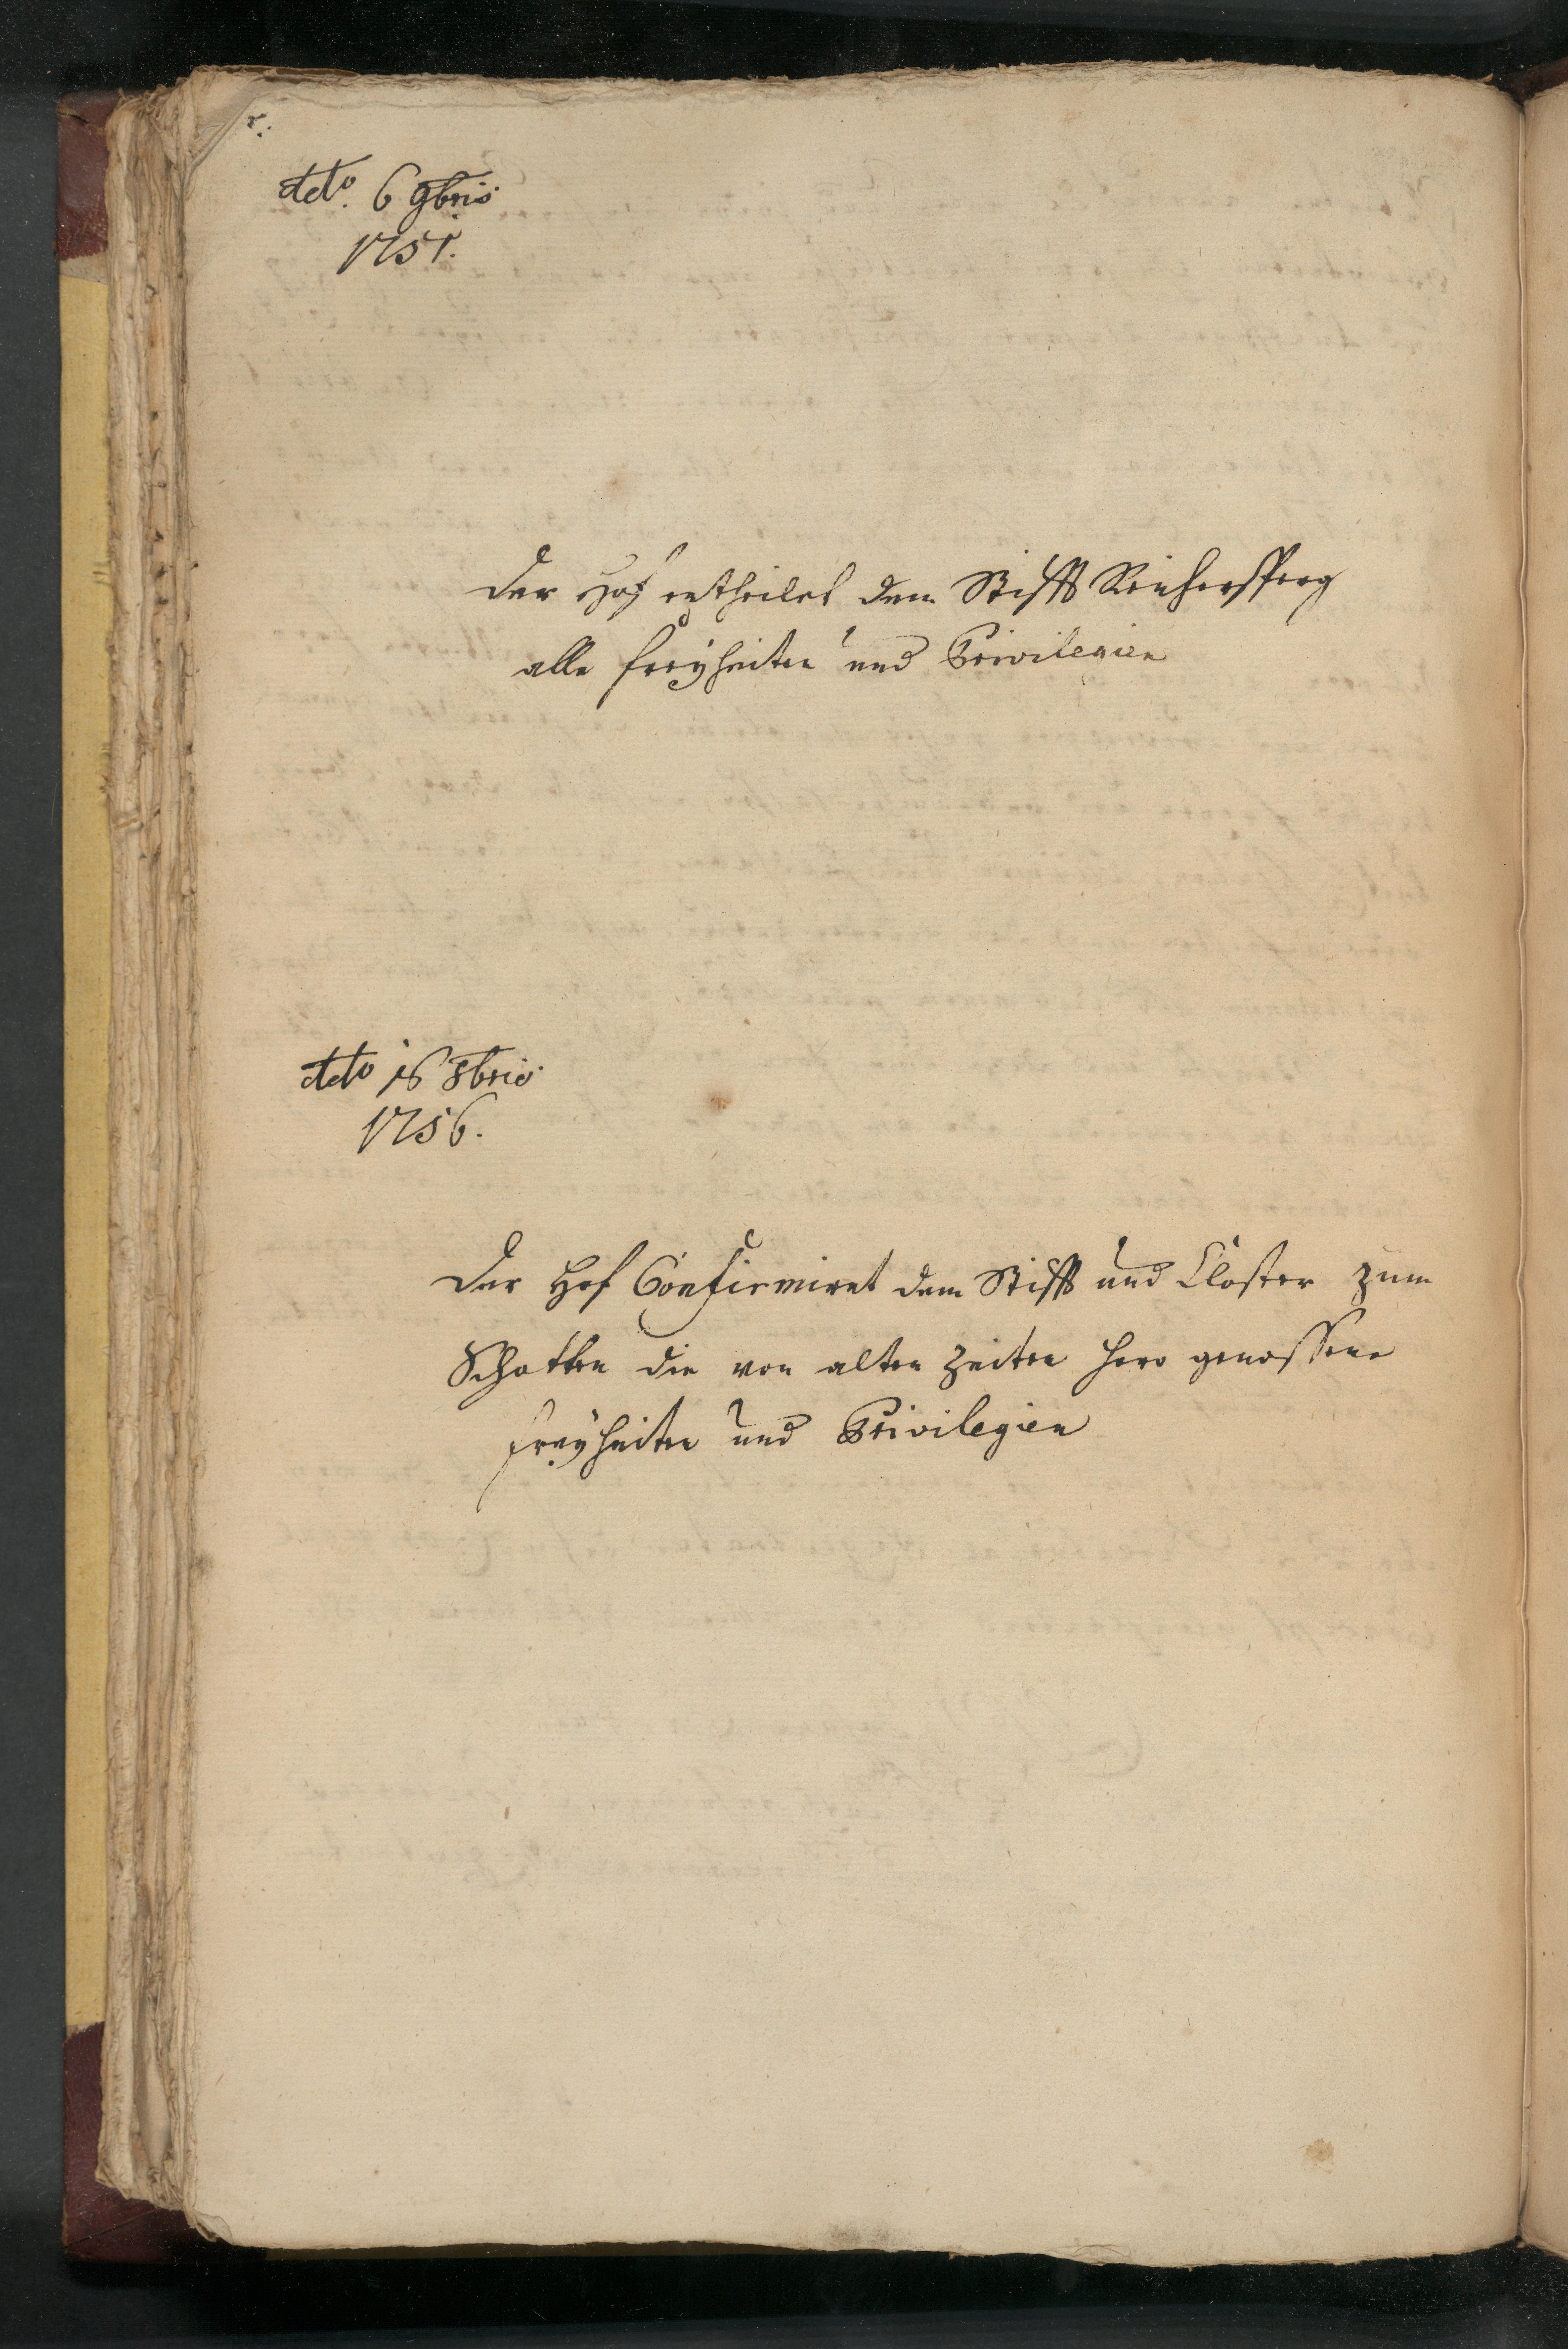 ddto. 6 9bris
1751.
Der Hof ertheilet dem Stifft Reichersperg
alle freÿheiten und Privilegien
ddto 16 8bris
1756.
Der Hof Confirmiret dem Stifft und Closter zum
Schotten die von alten Zeiten hero genossene
freÿheiten und Privilegien